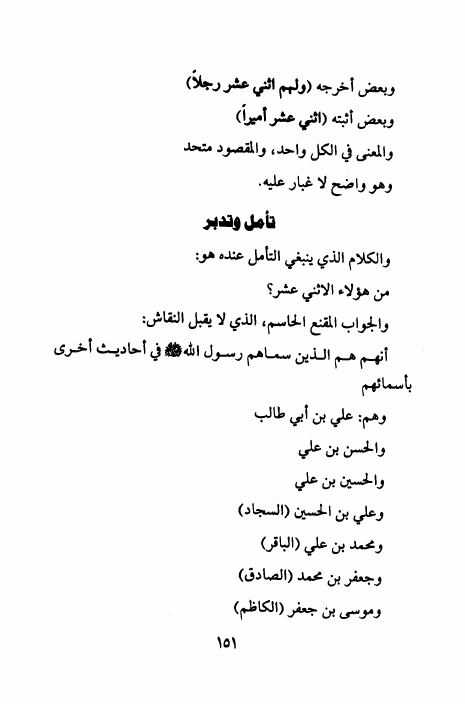 وبعض أخرجه (ولهم اثني عشر رجلاً)
وبعض أثبته (اثني عشر أميراً)
والمعنى في الكل واحد، والمقصود متحد
وهو واضح لا غبار عليه.
تأمل وتدبر
والكلام الذي ينبغي التأمل عنده هو:
من هؤلاء الاثني عشر؟
والجواب المقنع الحاسم، الذي لا يقبل النقاش:
أنهم هم الذين سماهم رسول الله ﷺ في أحاديث أخرى
بأسمائهم
وهم: علي بن أبي طالب
والحسن بن علي
والحسين بن علي
وعلي بن الحسين (السجاد)
ومحمد بن علي (الباقر)
وجعفر بن محمد (الصادق)
وموسى بن جعفر (الكاظم)
١٥١